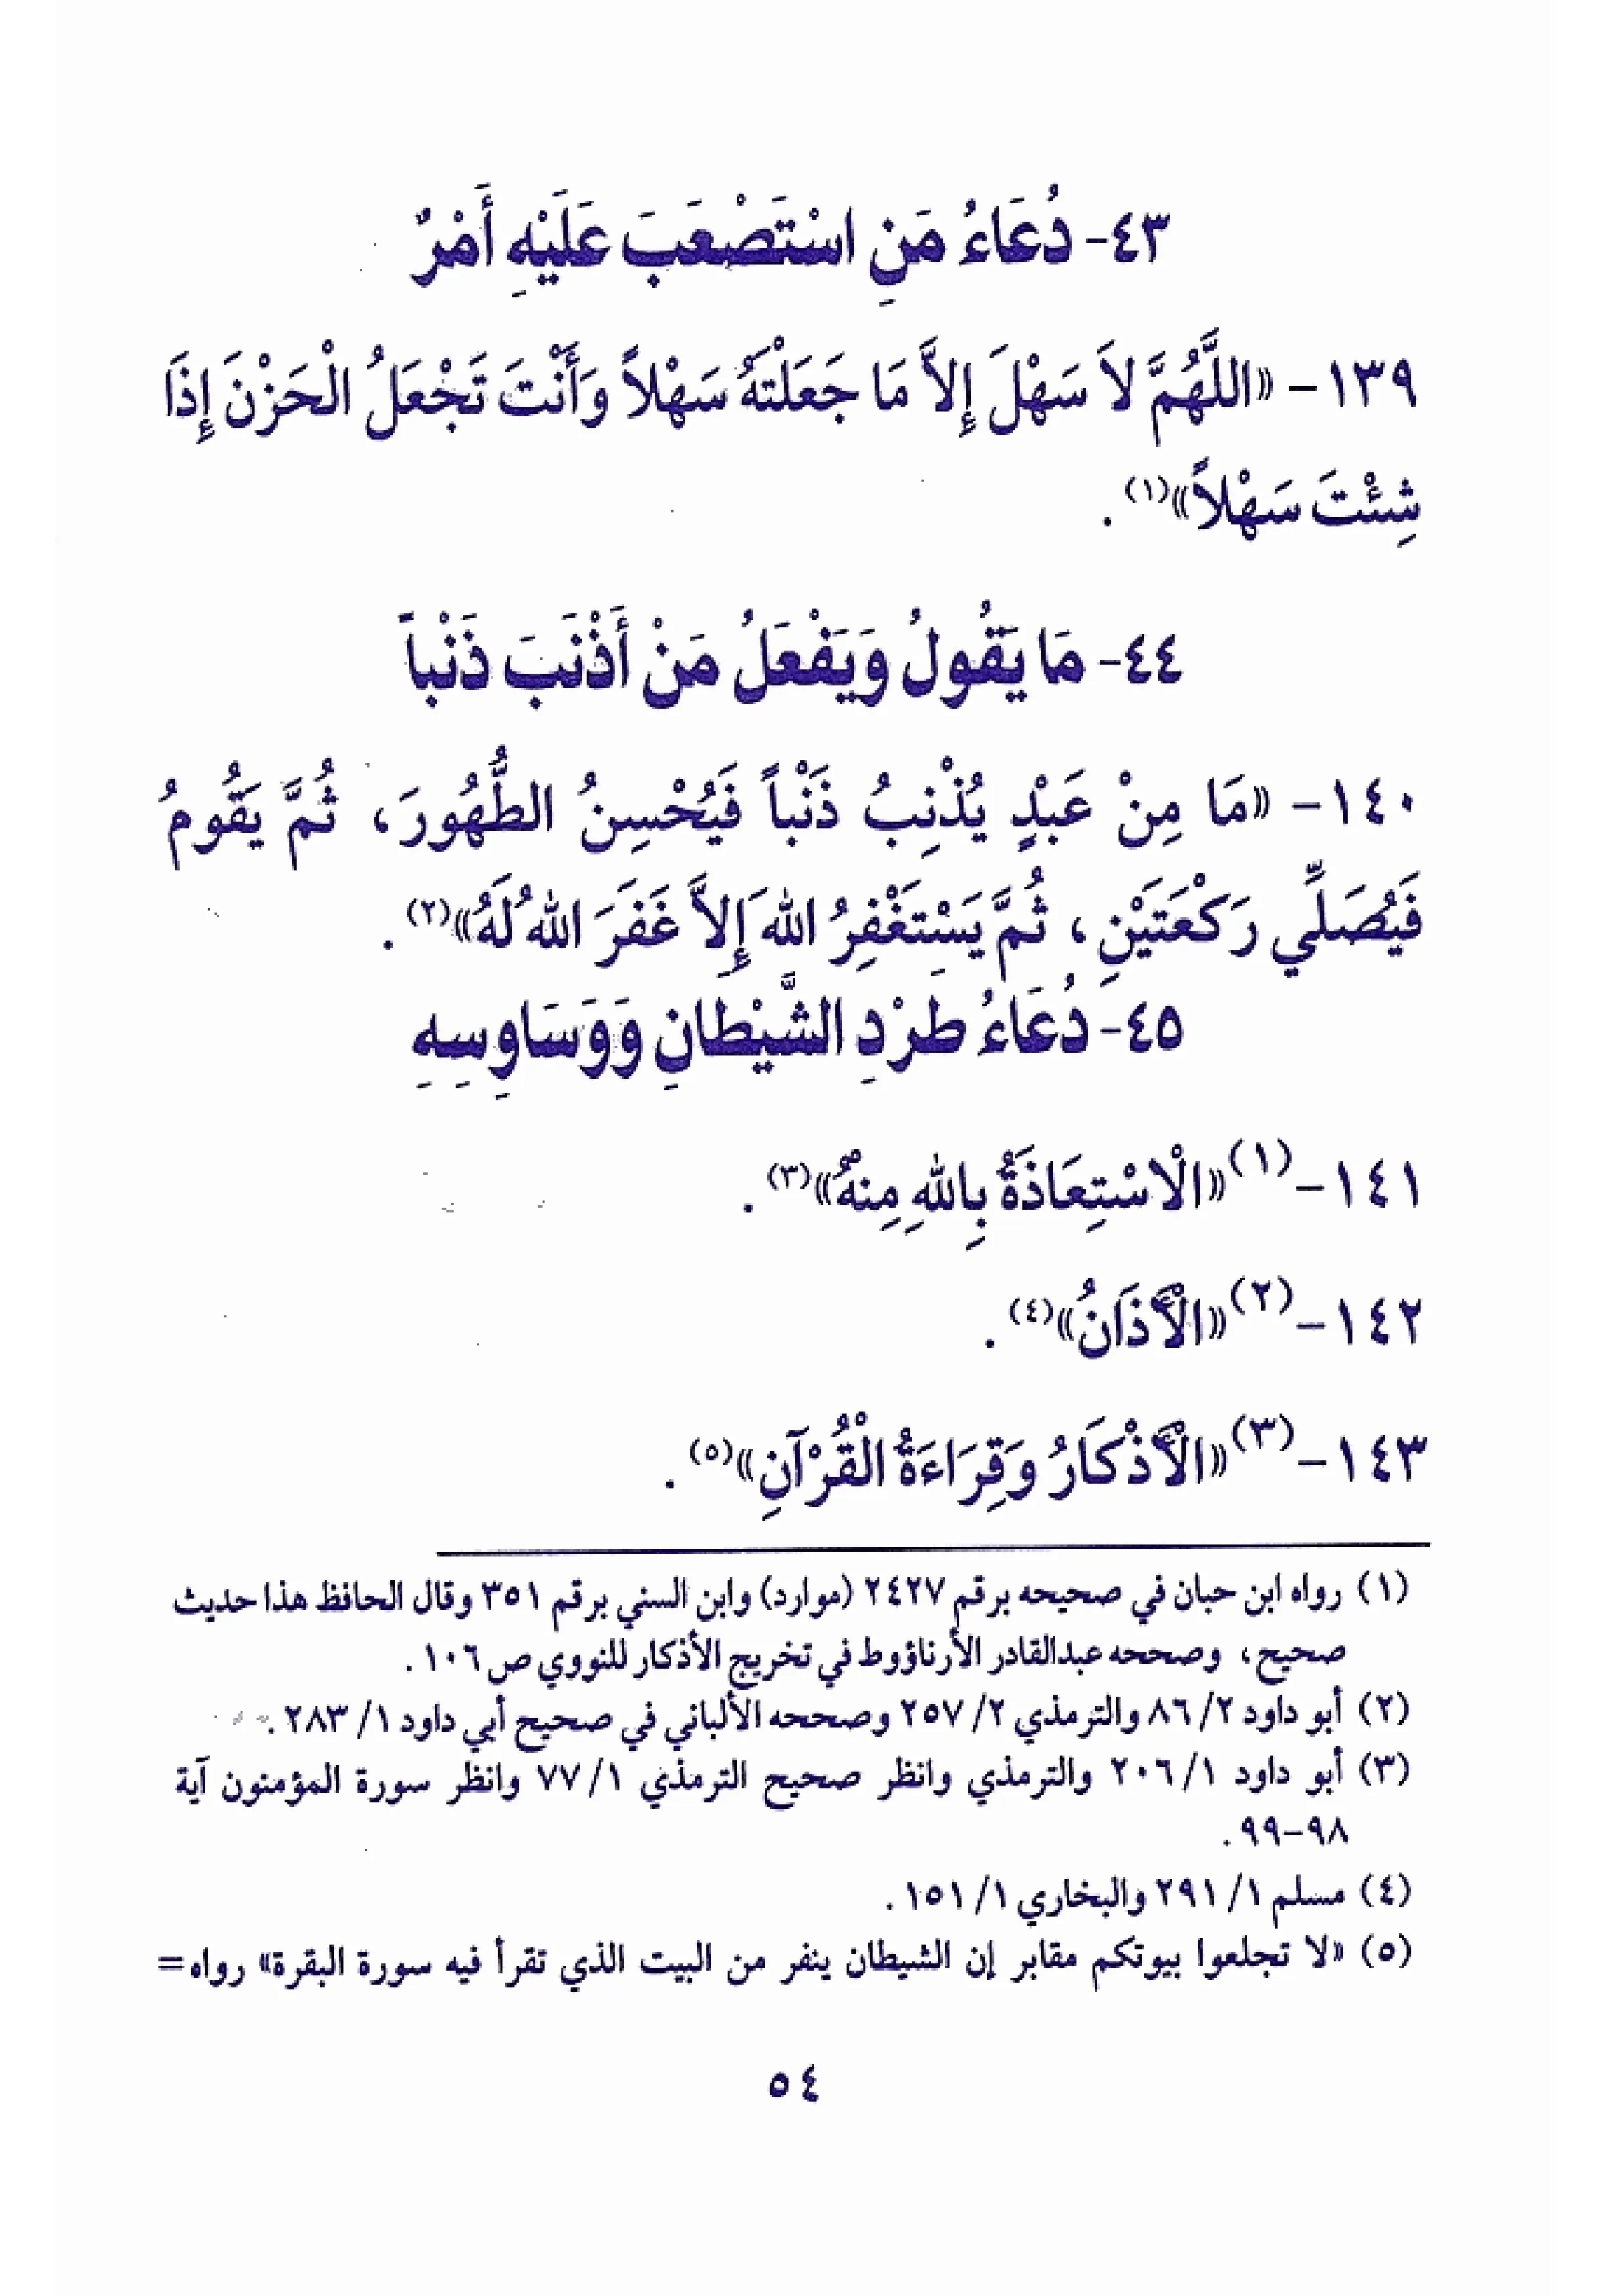 ٤٣- دُعَاءُ مَنِ اسْتَصْعَبَ عَلَيْهِ أَمْرٌ
١٣٩- «اللَّهُمَّ لاَ سَهْلَ إِلاَّ مَا جَعَلْتَهُ سَهْلاً وَأَنْتَ تَجْعَلُ الْحَزْنَ إِذَا
شِئْتَ سَهْلاً»(١).
٤٤- مَا يَقُولُ وَيَفْعَلُ مَنْ أَذْنَبَ ذَنْباً
١٤٠- «مَا مِنْ عَبْدٍ يُذْنِبُ ذَنْباً فَيُحْسِنُ الطُّهُورَ، ثُمَّ يَقُومُ
فَيُصَلِّي رَكْعَتَيْنِ، ثُمَّ يَسْتَغْفِرُ اللهَ إِلاَّ غَفَرَ اللهُ لَهُ»(٢).
٤٥- دُعَاءُ طَرْدِ الشَّيْطَانِ وَوَسَاوِسِهِ
١٤١-(١) «الْاسْتِعَاذَةُ بِاللهِ مِنْهُ»(٣).
١٤٢-(٢) «الْأَذَانُ»(٤).
١٤٣-(٣) «الْأَذْكَارُ وَقِرَاءَةُ الْقُرْآنِ»(٥).
(١) رواه ابن حبان في صحيحه برقم ٢٤٢٧ (موارد) وابن السني برقم ٣٥١ وقال الحافظ هذا حديث
صحيح، وصححه عبدالقادر الأرناؤوط في تخريج الأذكار للنووي ص١٠٦.
(٢) أبو داود ٢/ ٨٦ والترمذي ٢/ ٢٥٧ وصححه الألباني في صحيح أبي داود ١/ ٢٨٣.
(٣) أبو داود ١/ ٢٠٦ والترمذي وانظر صحيح الترمذي ١/ ٧٧ وانظر سورة المؤمنون آية
٩٨-٩٩.
(٤) مسلم ١/ ٢٩١ والبخاري ١/ ١٥١.
(٥) «لا تجلعوا بيوتكم مقابر إن الشيطان ينفر من البيت الذي تقرأ فيه سورة البقرة» رواه=
٥٤